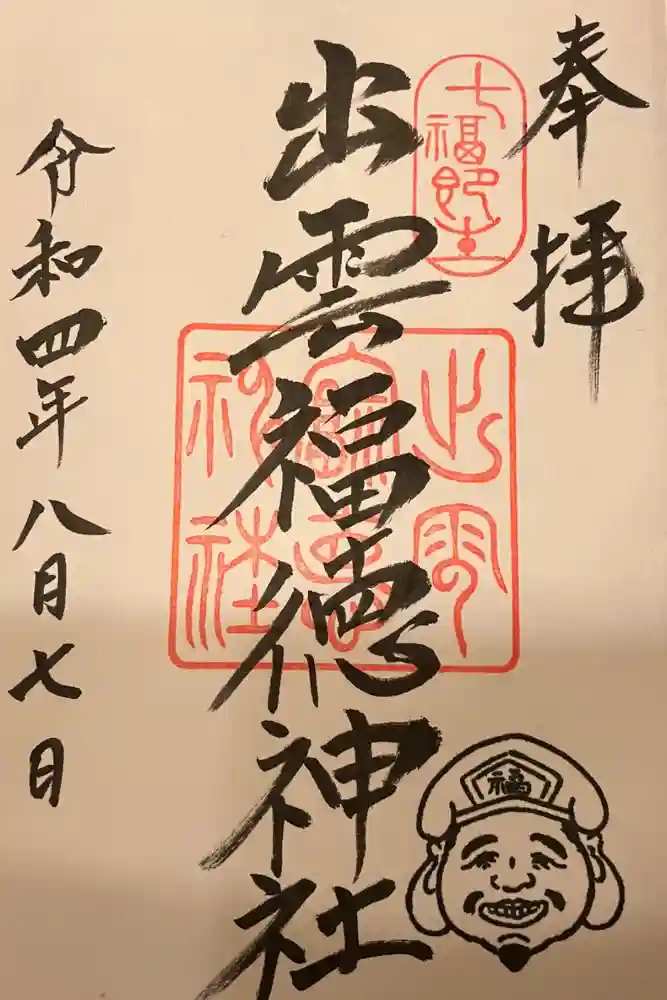 奉拝
七福即生
出雲福徳神社
出雲
福徳
神社
令和四年八月七日
福